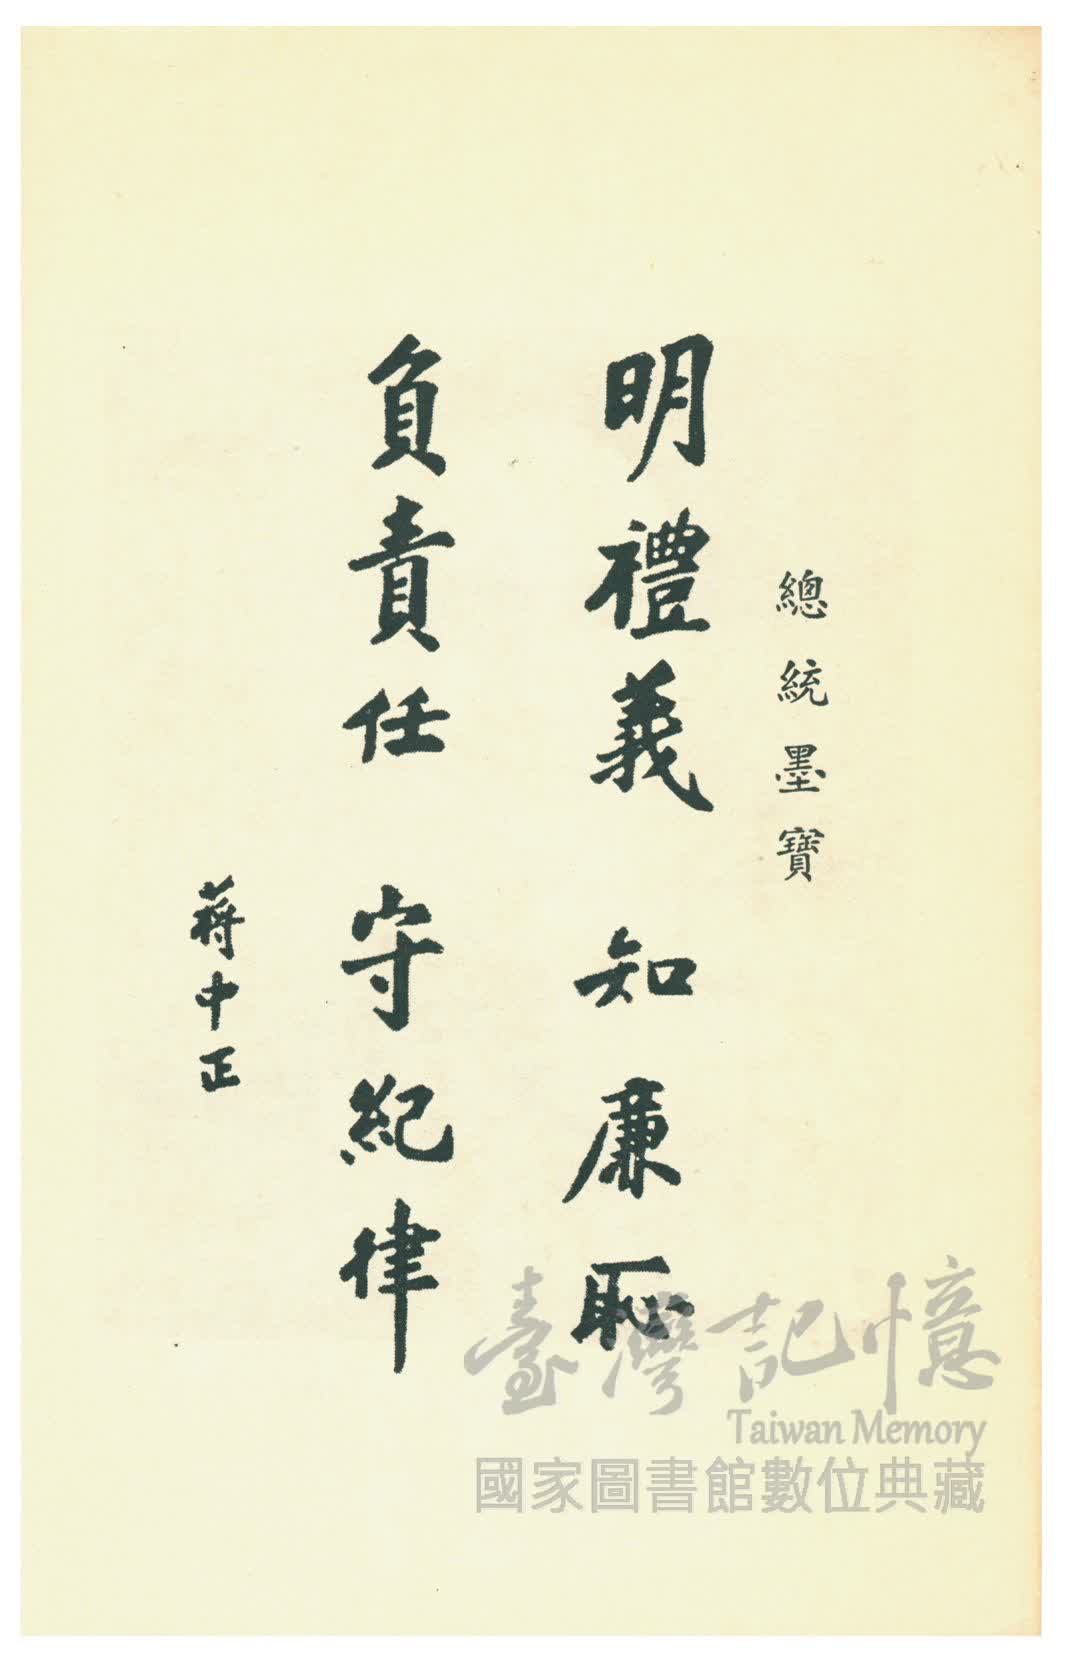 總統墨寶
明禮義 知廉恥
負責任 守紀律
蔣中正
臺灣記憶
Taiwan Memory
國家圖書館數位典藏